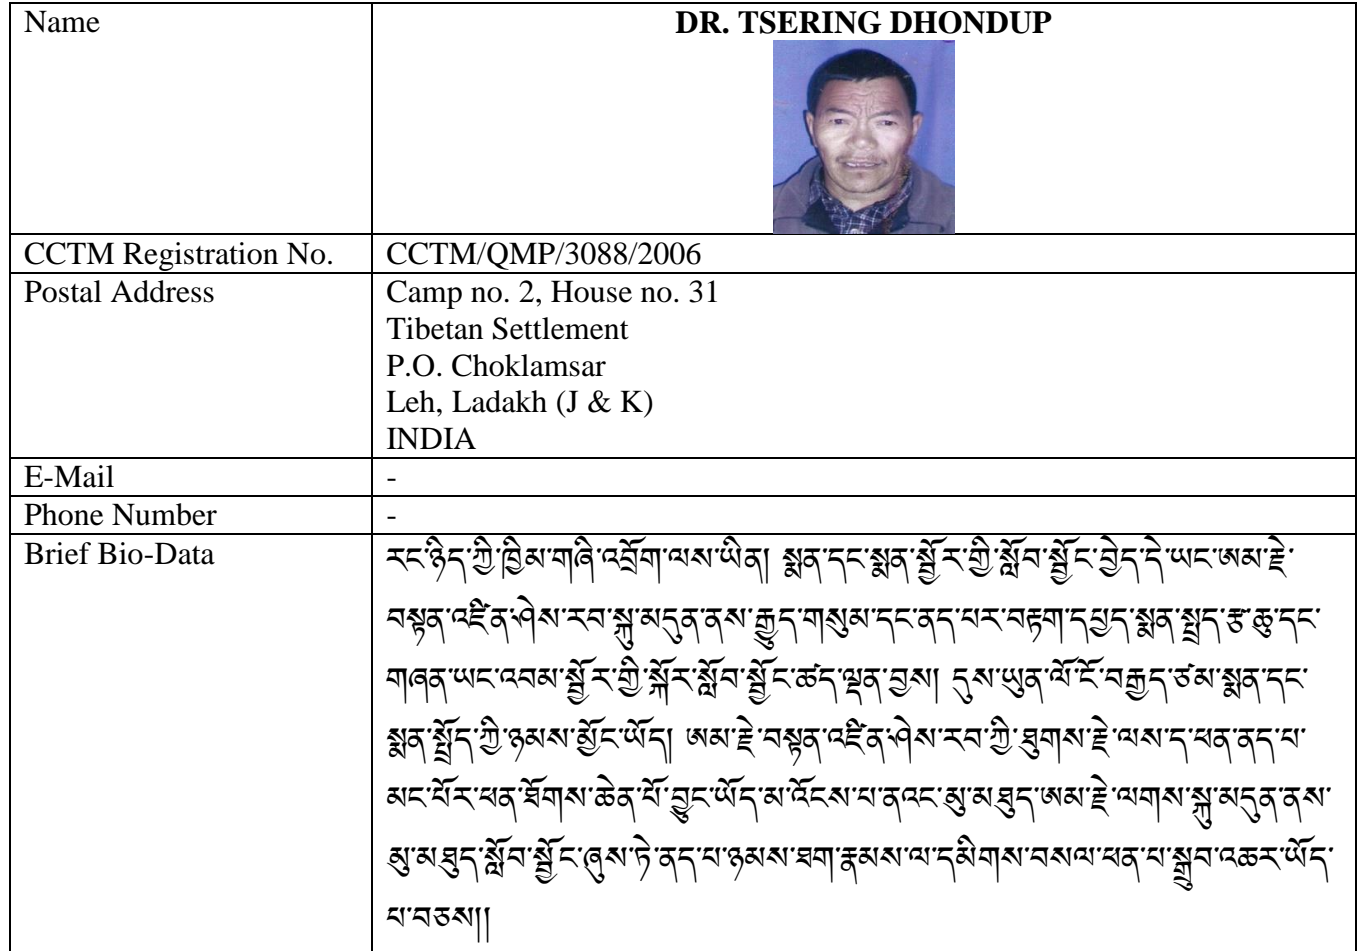 Name DR. TSERING DHONDUP
CCTM Registration No. CCTM/QMP/3088/2006
Postal Address Camp no. 2, House no. 31
Tibetan Settlement
P.O. Choklamsar
Leh, Ladakh (J & K)
INDIA
E-Mail -
Phone Number -
Brief Bio-Data རང་ཉིད་ཀྱི་ཁྱིམ་གཞི་འབྲོག་ལས་ཡིན། སྨན་དང་སྨན་སྦྱོར་གྱི་སློབ་སྦྱོང་བྱེད་དེ་ཡང་ཨམ་རྗེ་
བསྟན་འཛིན་ཤེས་རབ་སྐུ་མདུན་ནས་རྒྱུད་གསུམ་དང་ནད་པར་བརྟག་དཔྱད་སྨན་སྤྲད་རྩ་ཆུ་དང་
གཞན་ཡང་འབམ་སྦྱོར་གྱི་སྐོར་སློབ་སྦྱོང་ཚད་ལྡན་བྱས། དུས་ཡུན་ལོ་ངོ་བརྒྱད་ཙམ་སྨན་དང་
སྨན་སྤྲོད་ཀྱི་ཉམས་མྱོང་ཡོད། ཨམ་རྗེ་བསྟན་འཛིན་ཤེས་རབ་ཀྱི་ཐུགས་རྗེ་ལས་ད་ཕན་ནད་པ་
མང་པོར་ཕན་ཐོགས་ཆེན་པོ་བྱུང་ཡོད་མ་འོངས་པ་ནའང་མུ་མཐུད་ཨམ་རྗེ་ལགས་སྐུ་མདུན་ནས་
མུ་མཐུད་སློབ་སྦྱོང་ཞུས་ཏེ་ནད་པ་ཉམས་ཐག་རྣམས་ལ་དམིགས་བསལ་ཕན་པ་སྒྲུབ་འཆར་ཡོད་
པ་བཅས།།